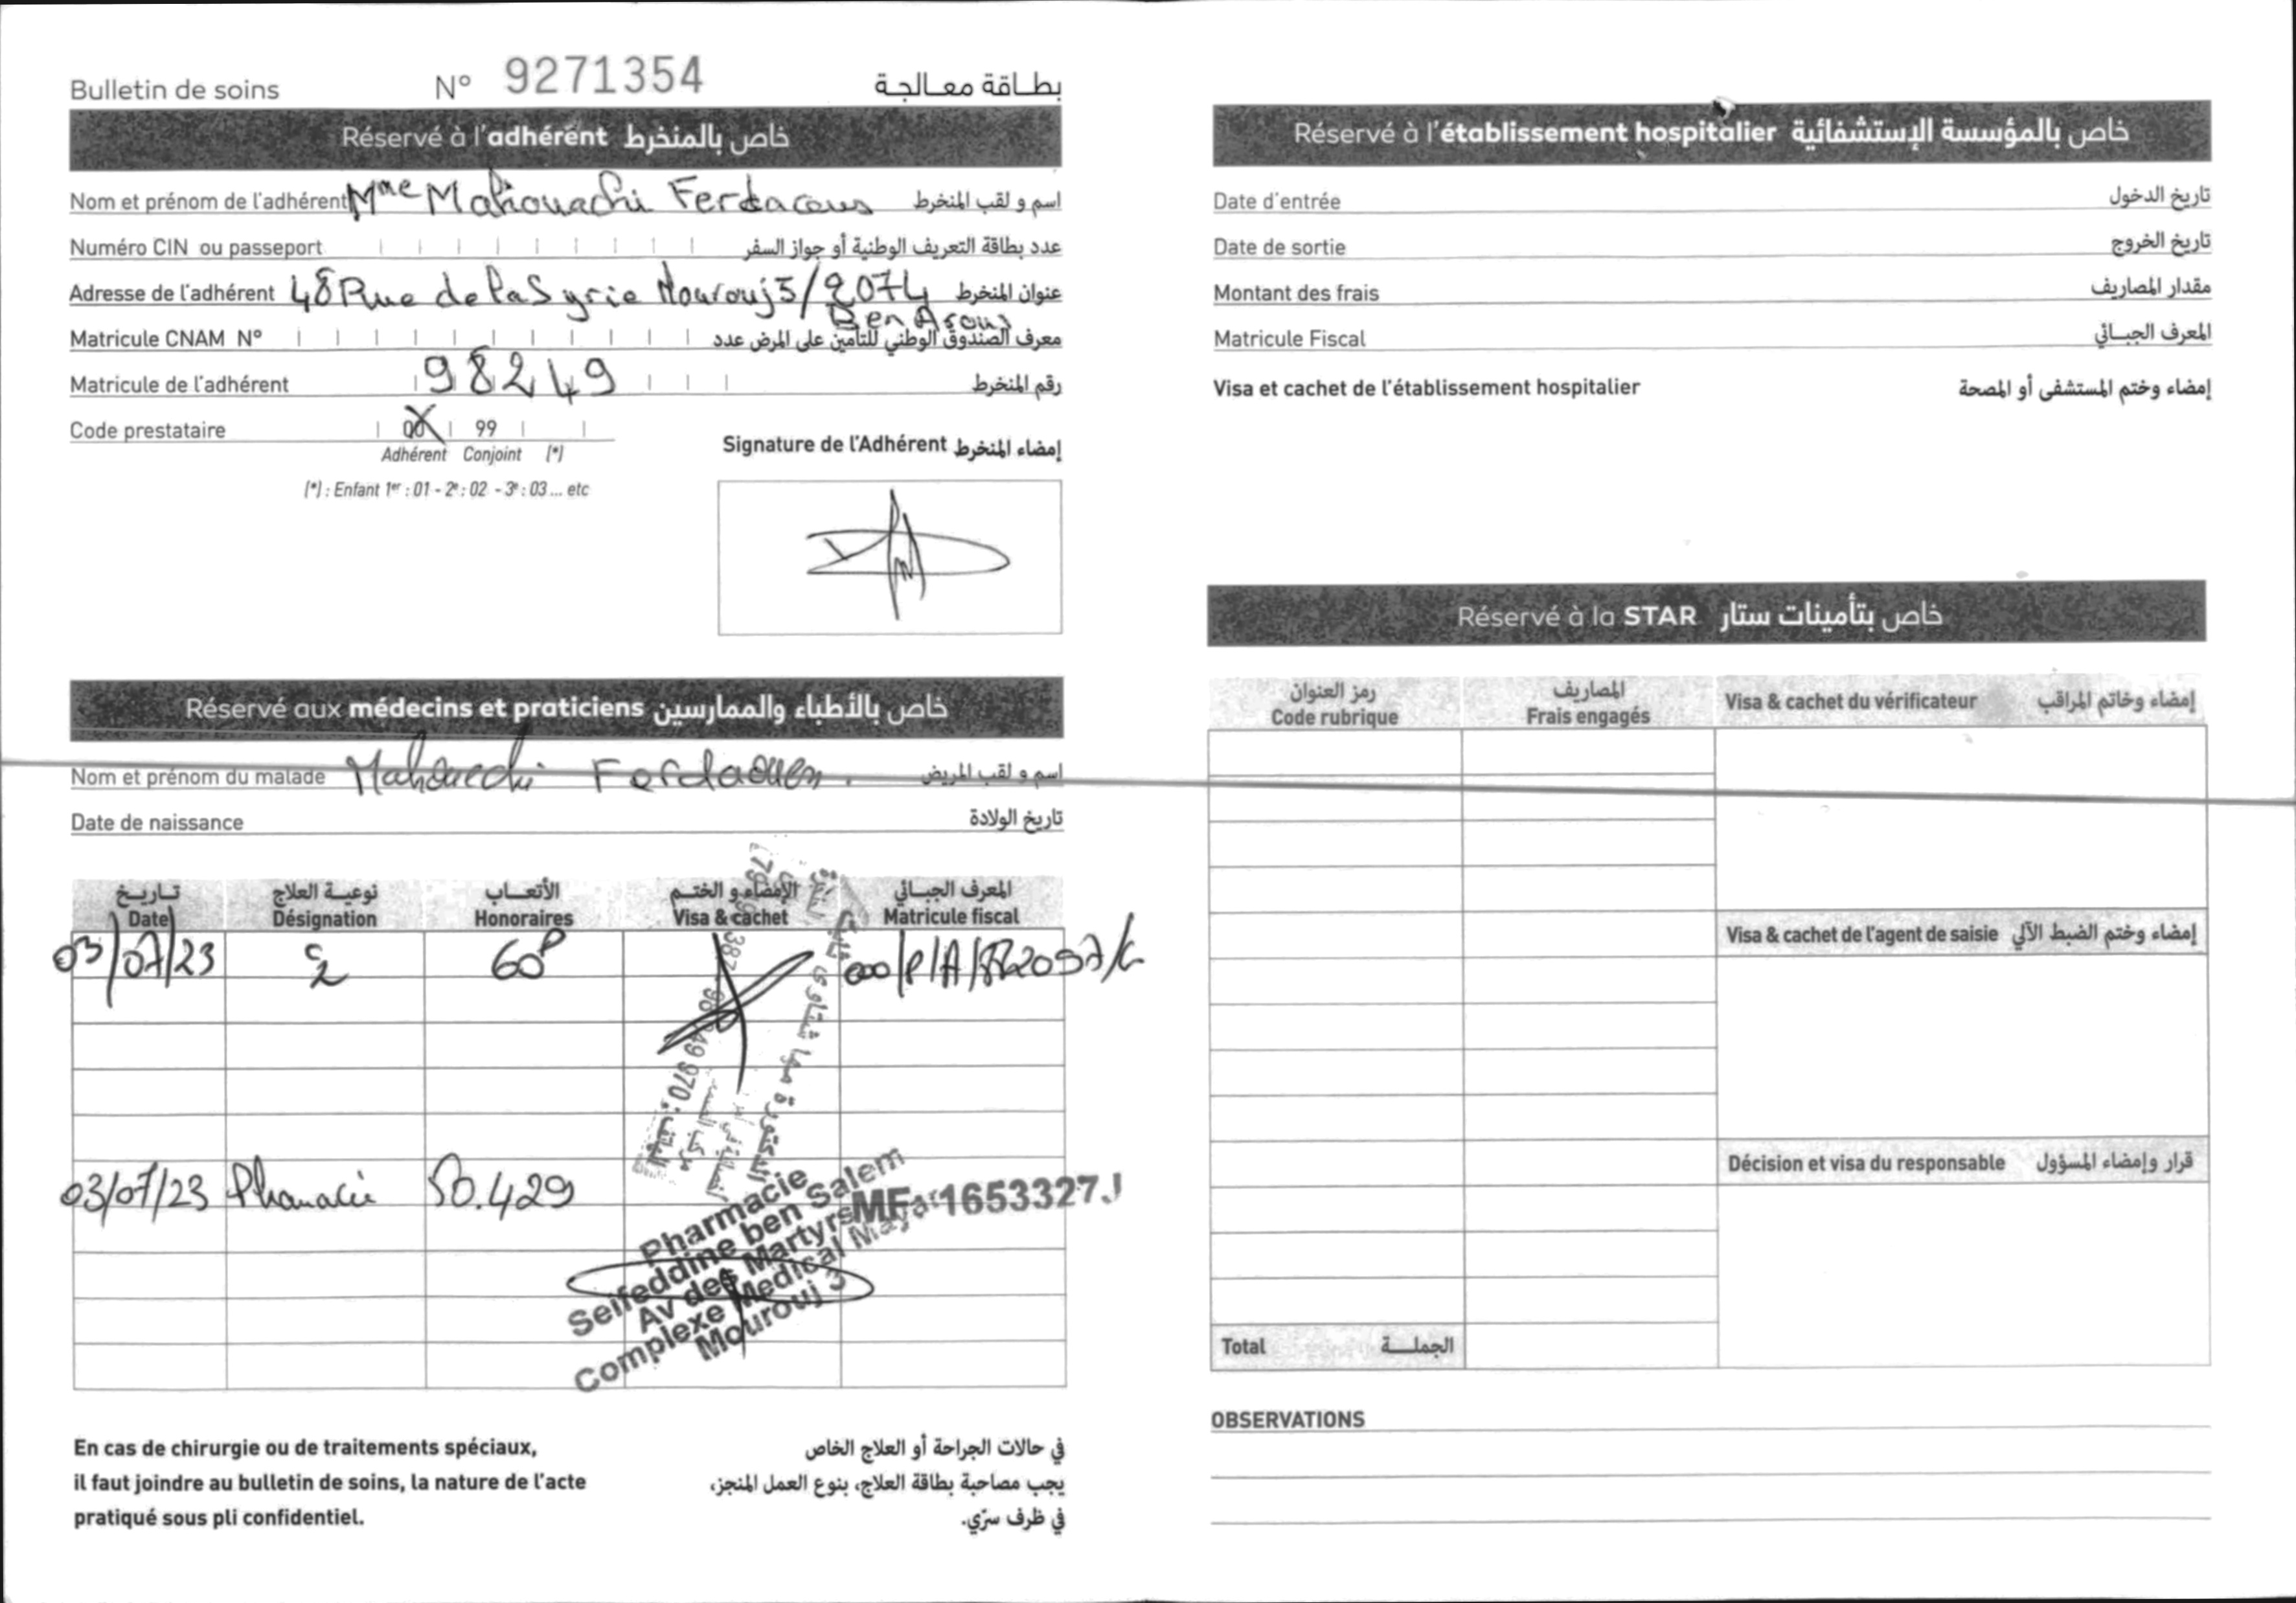 Bulletin de soins N° 9271354 بطاقة معالجة
Réservé à l'adhérent خاص بالمنخرط
Nom et prénom de l'adhérent Mme Mahouachi Ferdaous اسم و لقب المنخرط
Numéro CIN ou passeport عدد بطاقة التعريف الوطنية أو جواز السفر
Adresse de l'adhérent 48 Rue de la Syrie Mourouj 5/2074 عنوان المنخرط
Ben Arous
Matricule CNAM N° معرف الصندوق الوطني للتأمين على المرض عدد
Matricule de l'adhérent 98249 رقم المنخرط
Code prestataire 00 99
Adhérent Conjoint (*)
(*) : Enfant 1er : 01 - 2e : 02 - 3e : 03 ... etc
Signature de l'Adhérent إمضاء المنخرط
Réservé aux médecins et praticiens خاص بالأطباء والممارسين
Nom et prénom du malade Mahouachi Ferdaoues اسم و لقب المريض
Date de naissance تاريخ الولادة
تاريخ نوعية العلاج الأتعاب الإمضاء و الختم المعرف الجبائي
Date Désignation Honoraires Visa & cachet Matricule fiscal
03/07/23 60
03/07/23 Pharmacie 50.429
الدكتورة
الهاتف :
Pharmacie
Seifeddine ben Salem
Av des Martyrs
Complexe Medical Mayar
Mourouj 3
MF 1653327J
En cas de chirurgie ou de traitements spéciaux,
il faut joindre au bulletin de soins, la nature de l'acte
pratiqué sous pli confidentiel.
في حالات الجراحة أو العلاج الخاص
يجب مصاحبة بطاقة العلاج، بنوع العمل المنجز،
في ظرف سرّي.
Réservé à l'établissement hospitalier خاص بالمؤسسة الإستشفائية
Date d'entrée تاريخ الدخول
Date de sortie تاريخ الخروج
Montant des frais مقدار المصاريف
Matricule Fiscal المعرف الجبائي
Visa et cachet de l'établissement hospitalier إمضاء وختم المستشفى أو المصحة
Réservé à la STAR خاص بتأمينات ستار
رمز العنوان المصاريف
Code rubrique Frais engagés Visa & cachet du vérificateur إمضاء وخاتم المراقب
Visa & cachet de l'agent de saisie إمضاء وختم الضبط الآلي
Décision et visa du responsable قرار وإمضاء المسؤول
Total الجملة
OBSERVATIONS